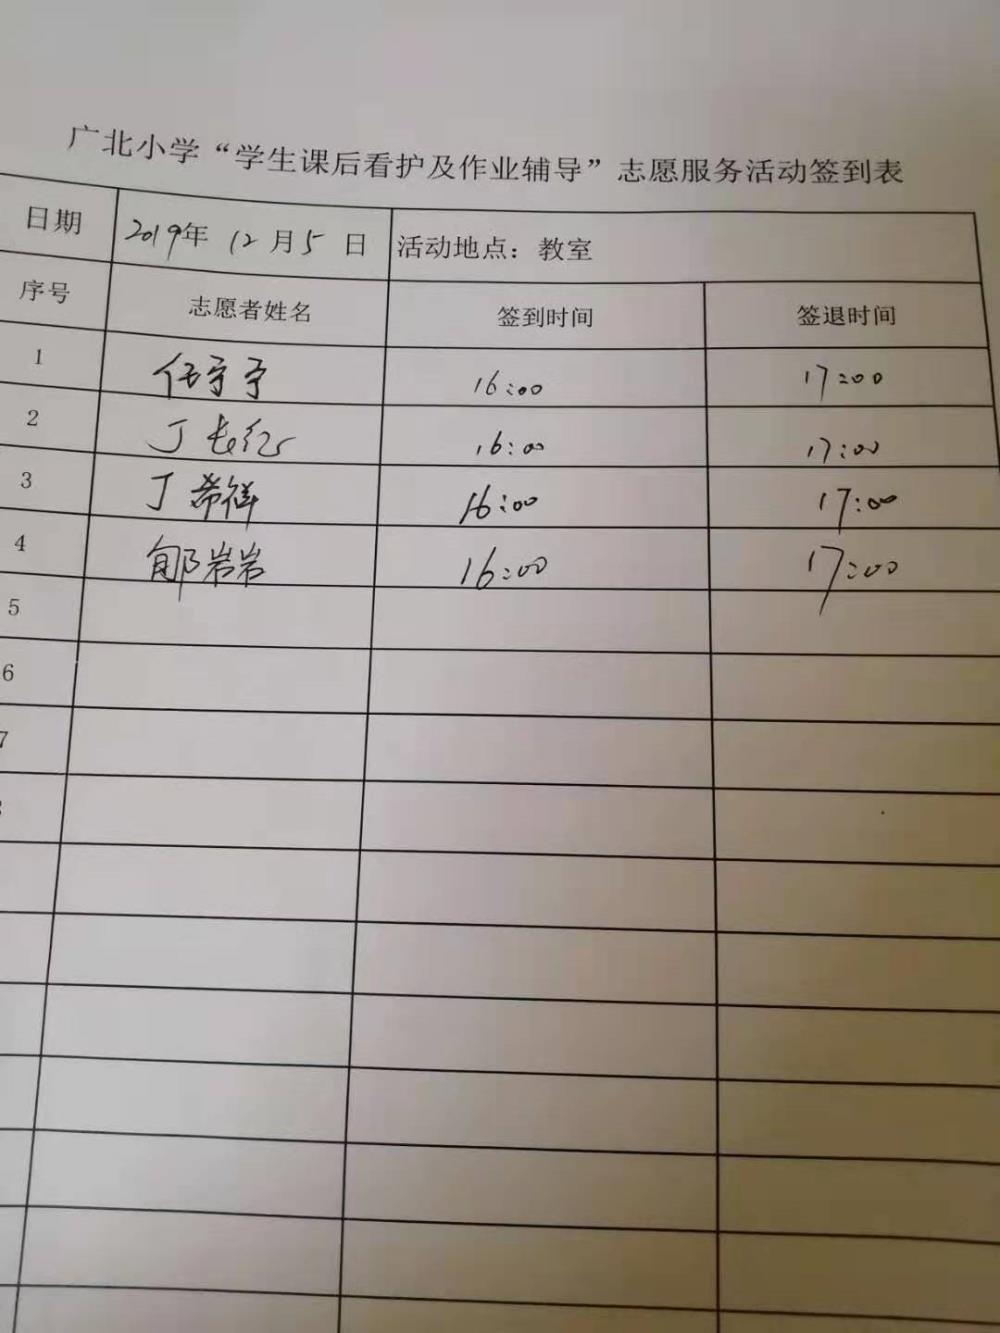 广北小学“学生课后看护及作业辅导”志愿服务活动签到表
日期 2019年 12月5日 活动地点：教室
序号 志愿者姓名 签到时间 签退时间
1 任予予 16:00 17:00
2 丁长红 16:00 17:00
3 丁希祥 16:00 17:00
4 郇岩岩 16:00 17:00
5
6
7